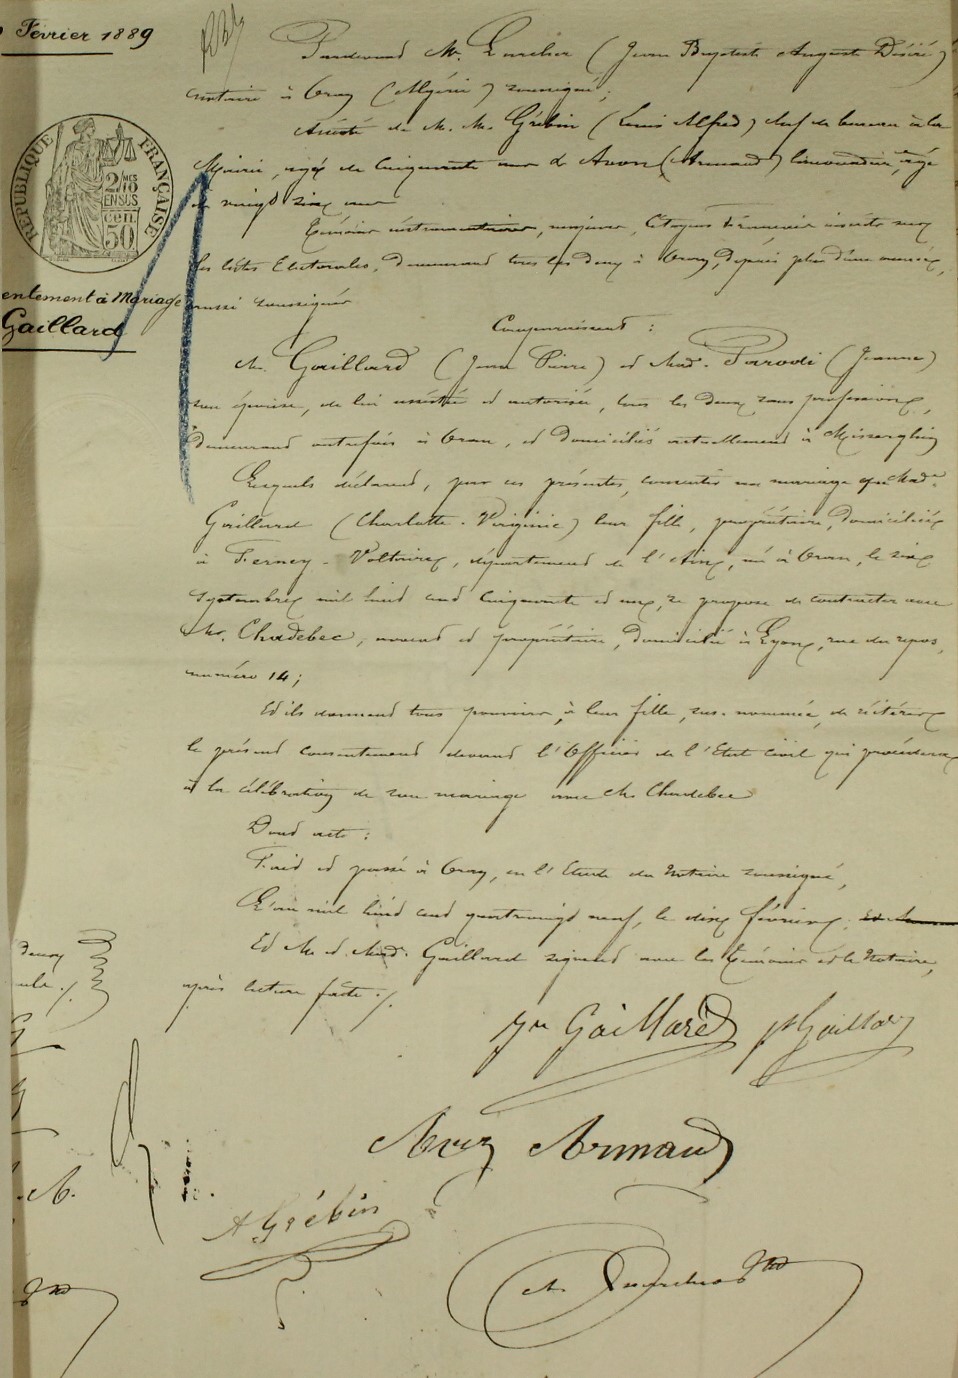 Février 1889
Pardevant Me (Jean Baptiste Auguste Désiré)
notaire à Oran (Algérie) soussigné;
Assisté de M. M. Grébin (Louis Alfred) chef de bureau à la
Mairie, agé de Cinquante ans & (Armand) limonadier, agé
de vingt six ans
Témoins instrumentaires, majeurs, Citoyens Français inscrits sur
les listes Electorales, demeurant tous les deux à Oran, depuis plus d'une année,
aussi soussignés
RÉPUBLIQUE FRANÇAISE
2/10 MES
EN SUS
cen
50
entement à Mariage
Gaillard
Comparaissent :
M. Gaillard (Jean Pierre) et Made Parodi (Jeanne)
son épouse, de lui assistée et autorisée, tous les deux sans profession,
demeurant autrefois à Oran, et domiciliés actuellement à Misserghin
Lesquels déclarent, par ces présentes, consentir au mariage que Made
Gaillard (Charlotte-Virginie) leur fille, propriétaire, domiciliée
à Ferney-Voltaire, département de l'Ain, né à Oran, le six
septembre mil huit cent Cinquante et un, se propose de contracter avec
Mr. Chadebec, avocat et propriétaire, domicilié à Lyon, rue du repos,
numéro 14;
Et ils donnent tous pouvoirs, à leur fille, sus-nommée, de réitérer
le présent consentement devant l'Officier de l'Etat Civil qui procédera
à la célébration de son mariage avec M. Chadebec
Dont acte :
Fait et passé à Oran, en l'Etude du Notaire soussigné,
L'an mil huit cent quatrevingt neuf, le dix février.
Et M. et Made Gaillard signent avec les témoins et le Notaire,
après lecture faite ./.
Gaillard Gaillard
Armand
A Grébin